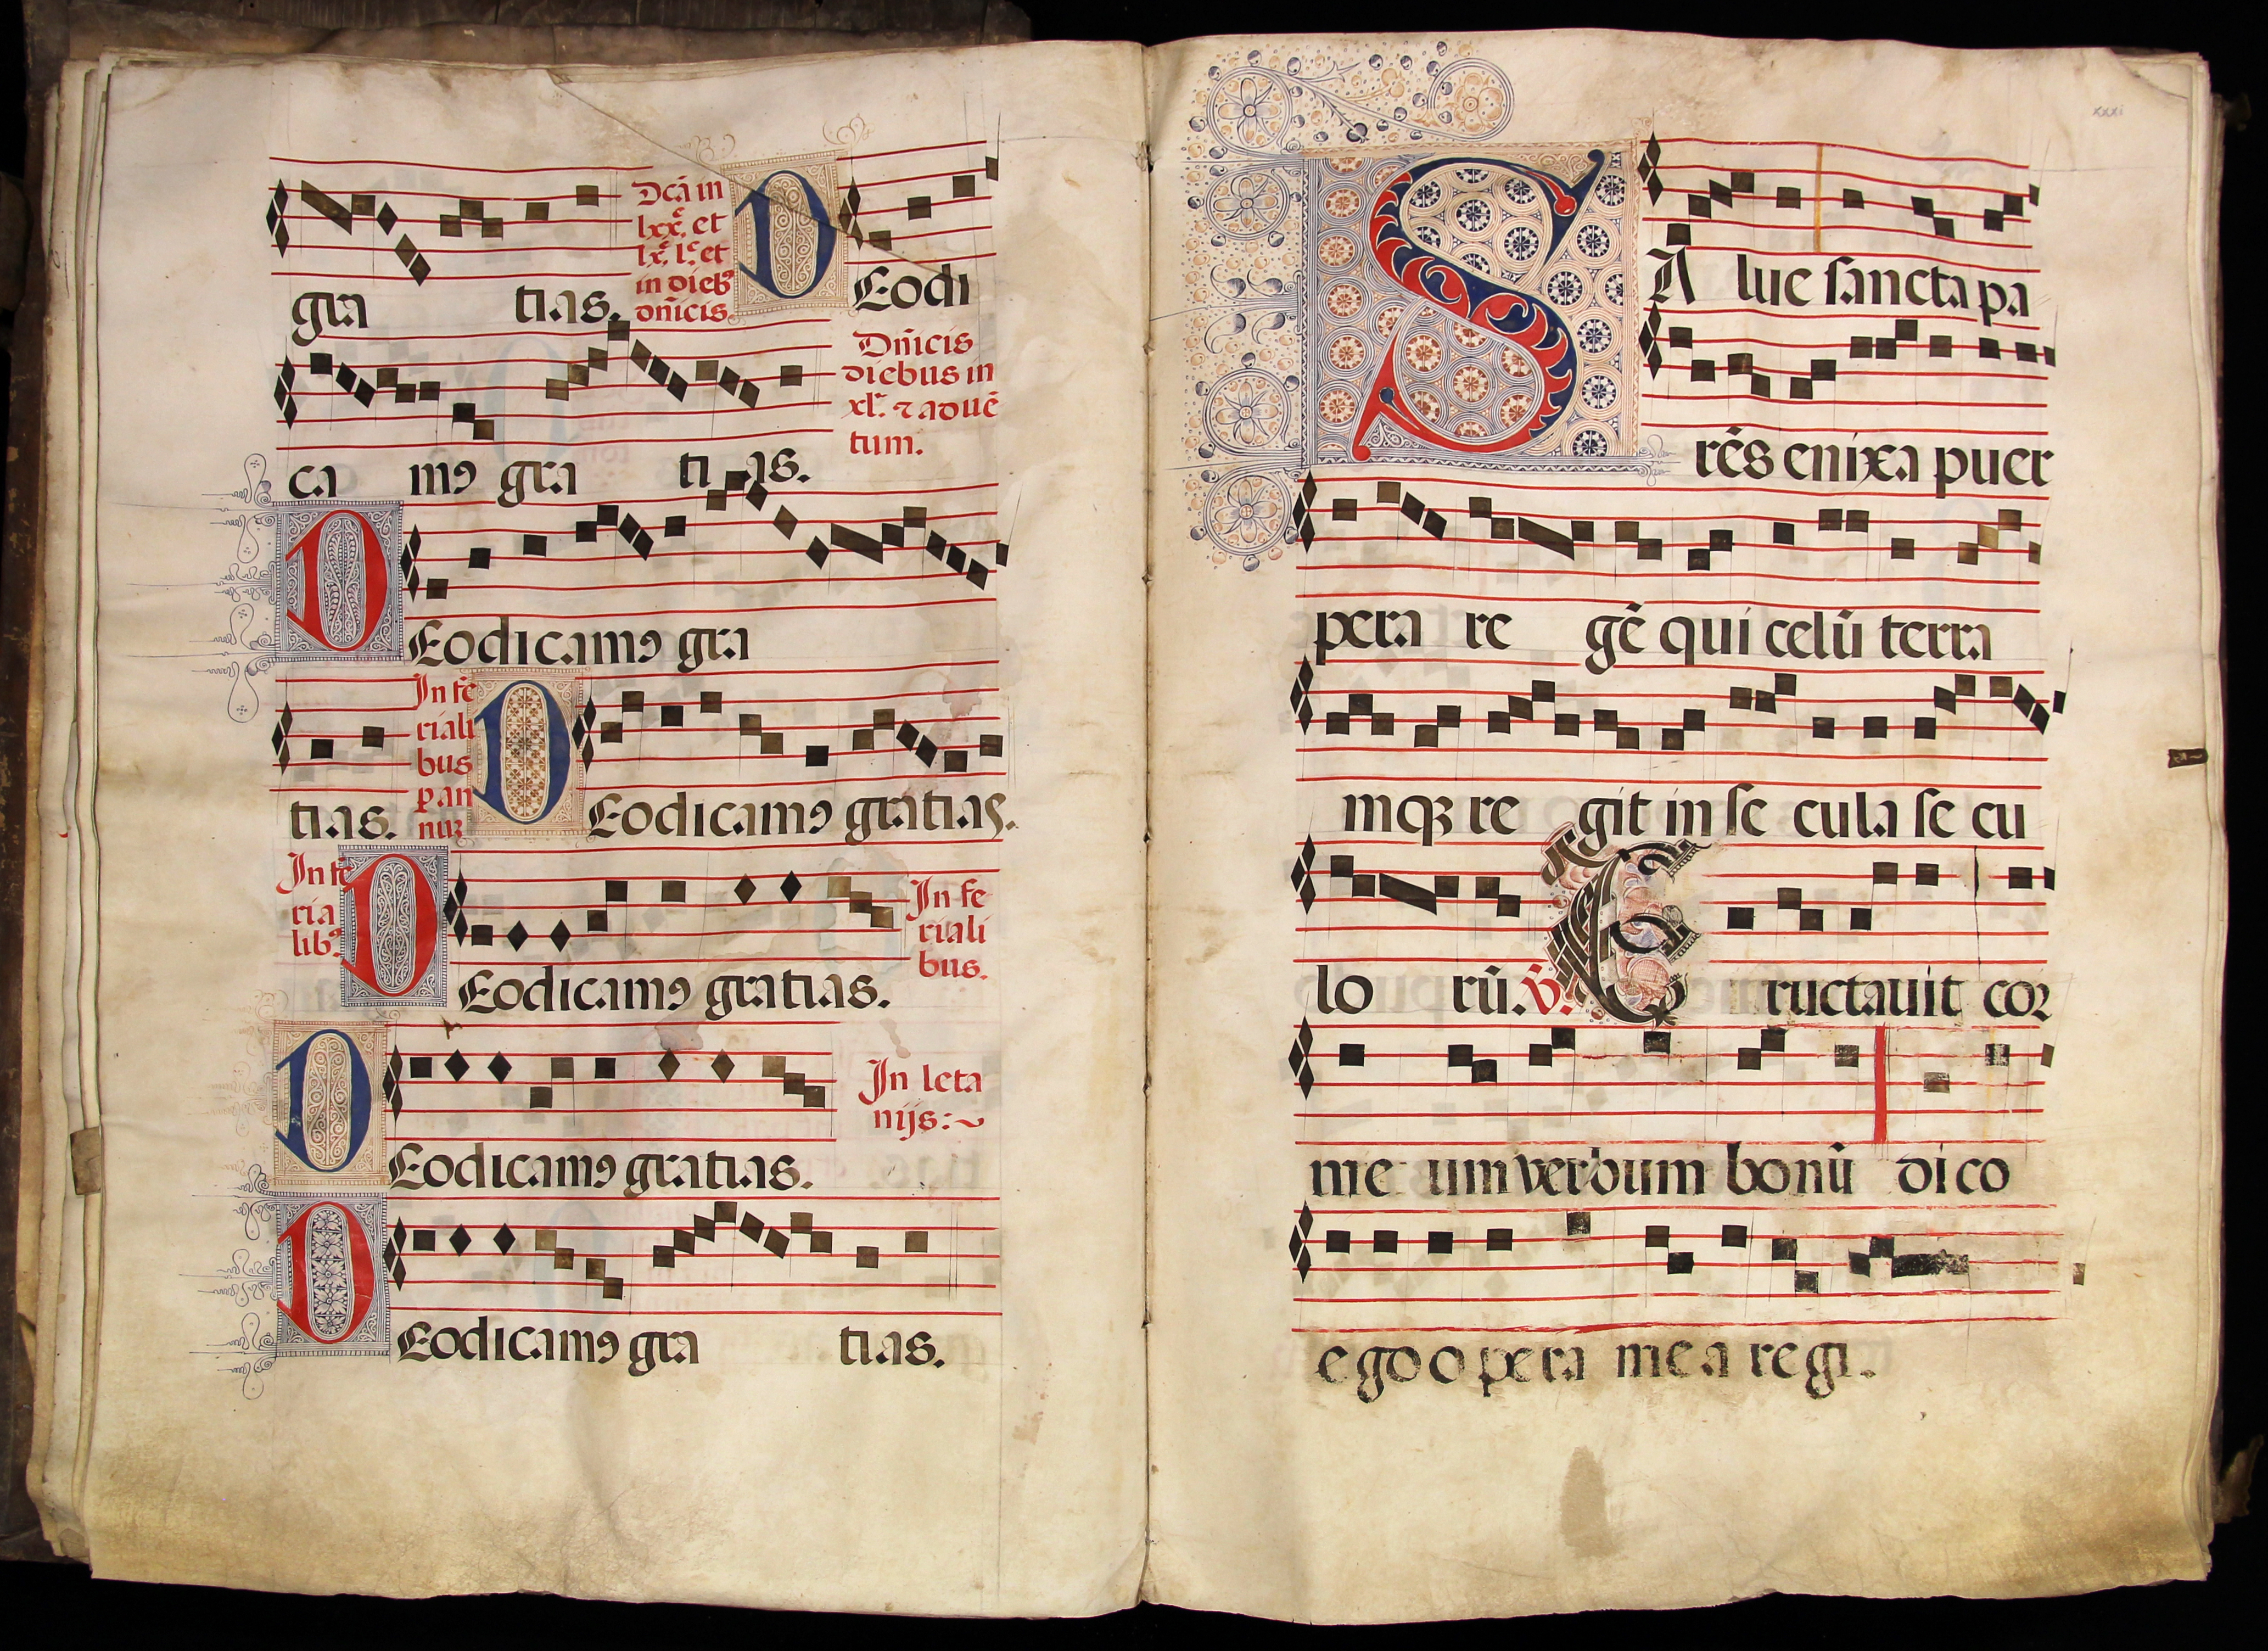 gra tias. Dcā in
lxx̄. et
lx̄. l. et
in dieb⁹
dn̄icis. DEodi
Dn̄icis
diebus in
xl. ⁊ aduē
tum.
ca m⁹ gra ti as.
DEodicam⁹ gra
tias. In fe
riali
bus
p an
nuꝝ DEodicam⁹ gratias.
In fe
ria
lib⁹. DEodicam⁹ gratias. In fe
riali
bus.
DEodicam⁹ gratias. In leta
nijs:~
DEodicam⁹ gra tias.
xxxi
SA lue sancta pa
rēs enixa puer
pera re gē qui celū terra
mqꝫ re git in se cula se cu
lo rū. ℣. Eructauit cor
me um verbum bonū dico
ego opera mea regi.